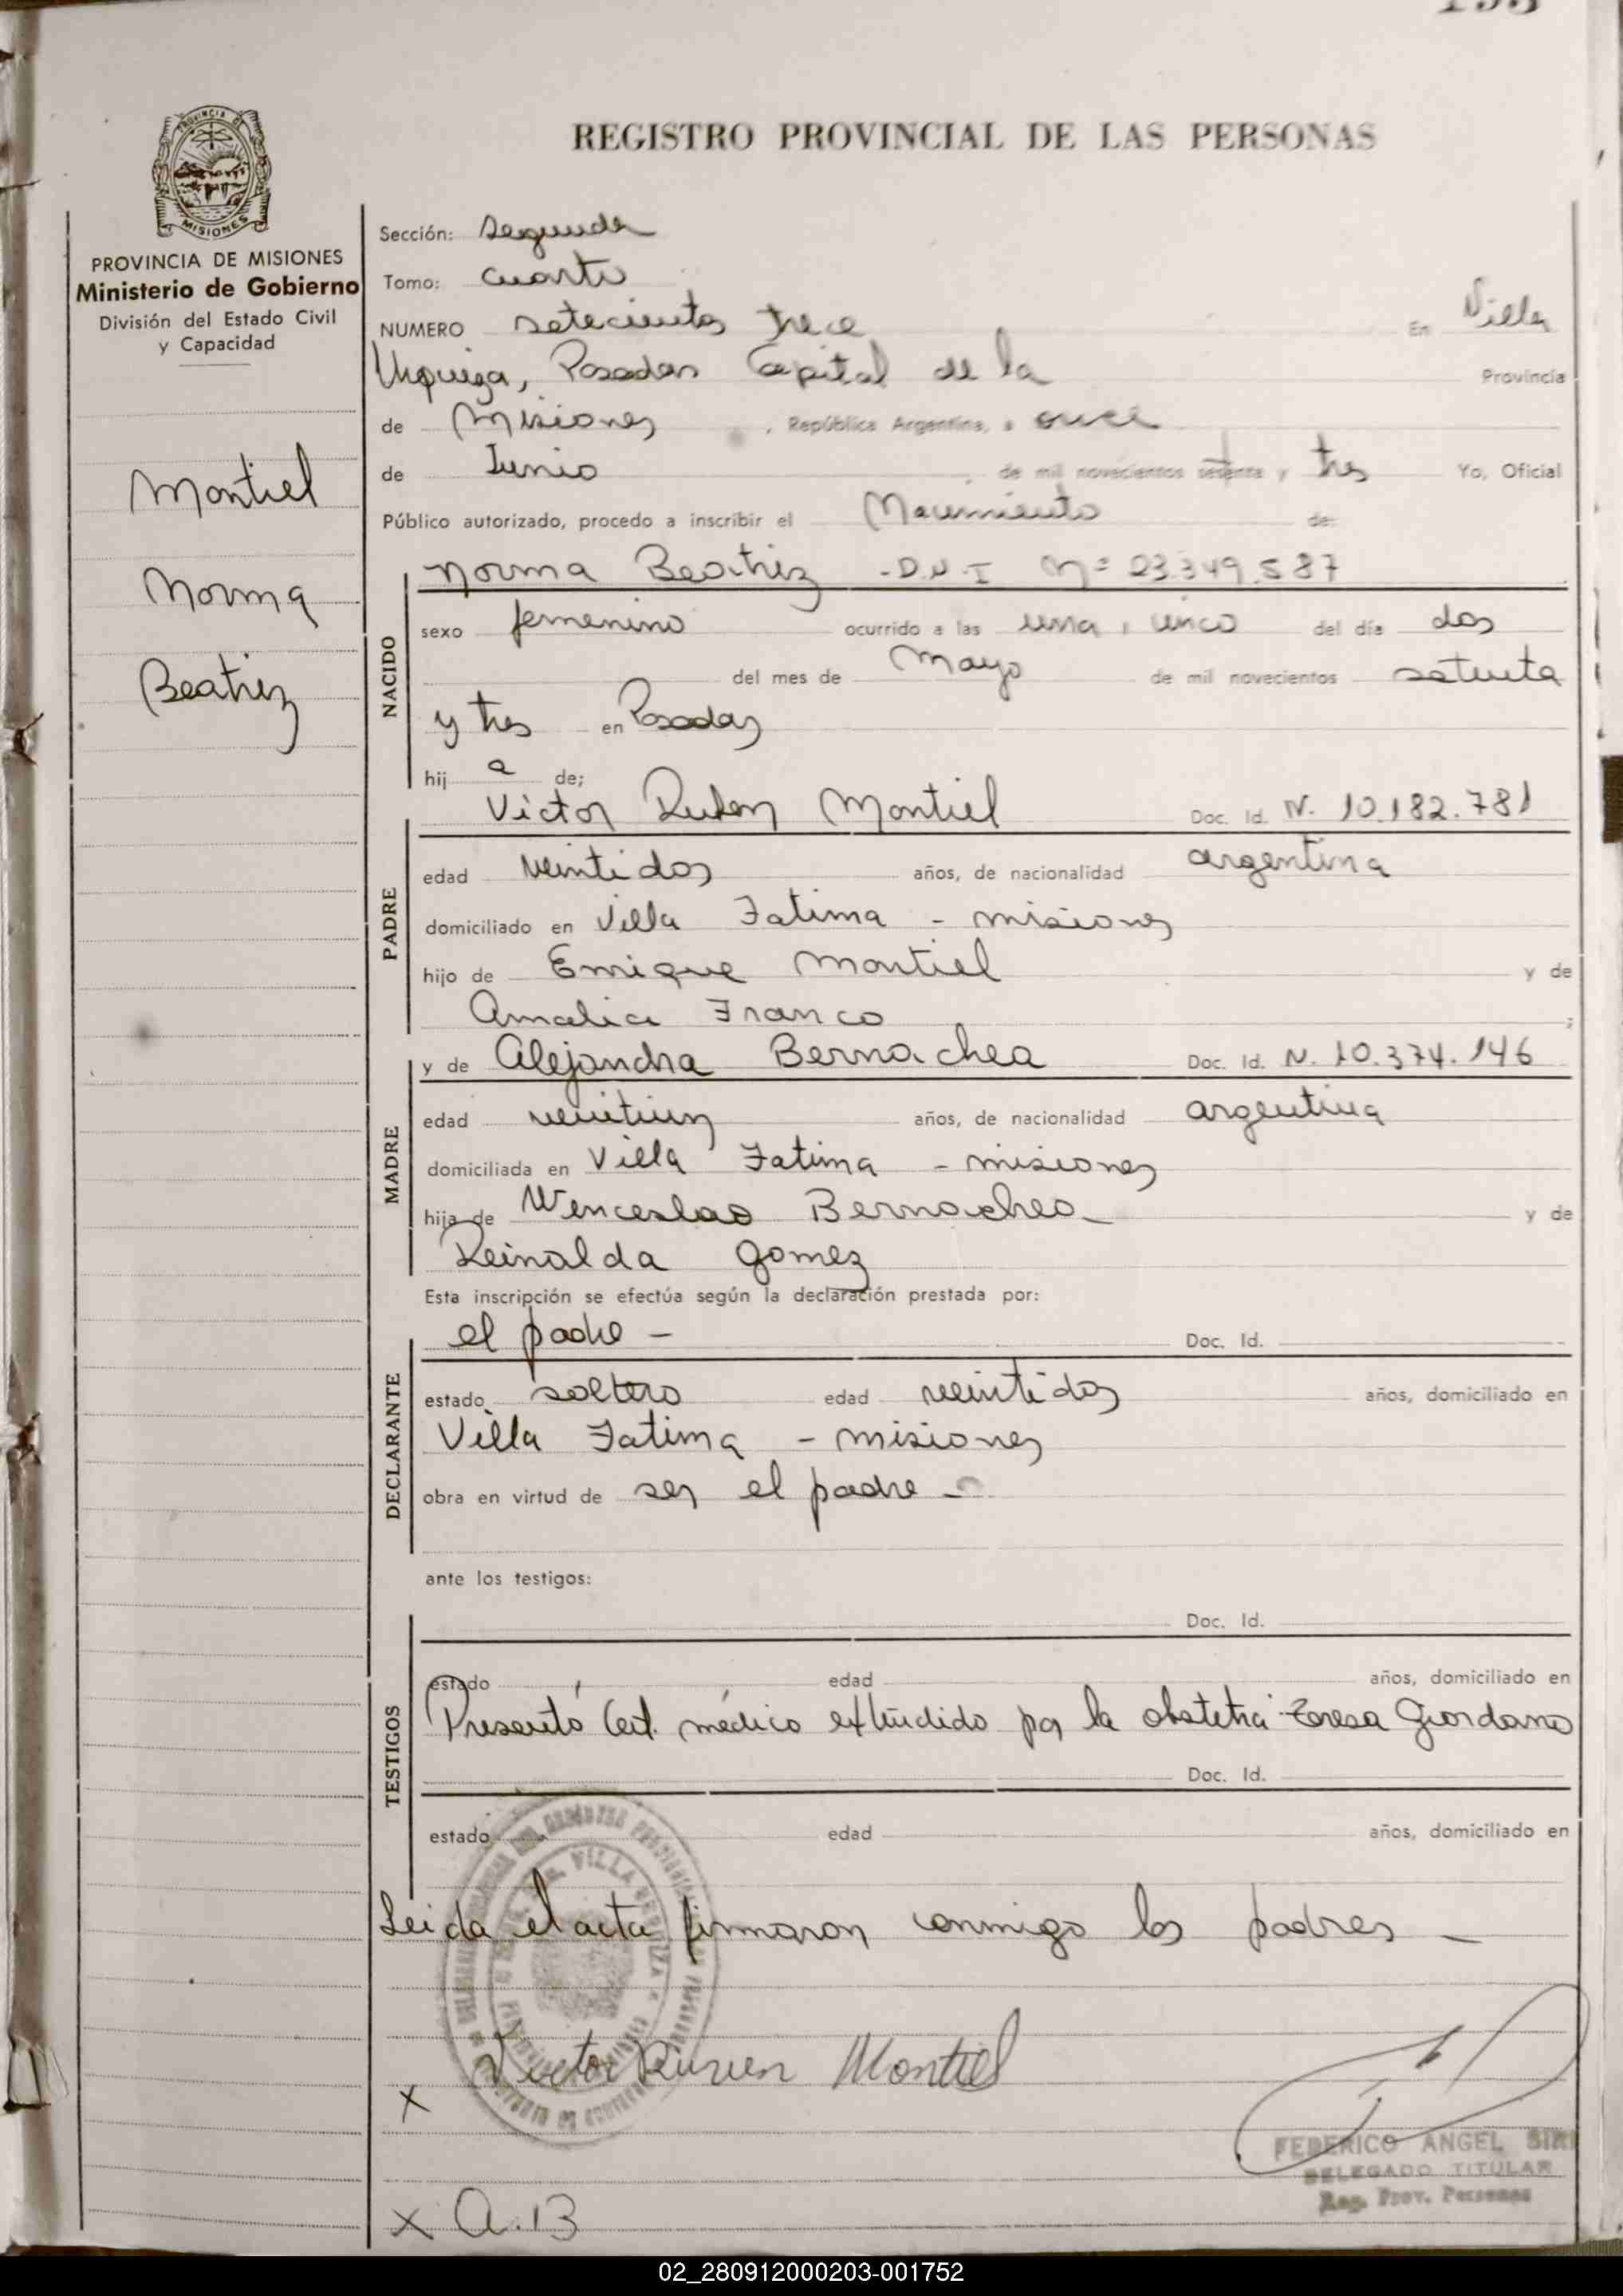 REGISTRO PROVINCIAL DE LAS PERSONAS
PROVINCIA DE
MISIONES
PROVINCIA DE MISIONES
Ministerio de Gobierno
División del Estado Civil
y Capacidad
Montiel
Norma
Beatriz
Sección: Segunda
Tomo: cuarto
NUMERO setecientos trece En Villa
Urquiza, Posadas Capital de la Provincia
de Misiones , República Argentina, a once
de Junio , de mil novecientos setenta y tres Yo, Oficial
Público autorizado, procedo a inscribir el Nacimiento de:
NACIDO
Norma Beatriz - D.N.I Nº 23.349.587
sexo femenino ocurrido a las una y cinco del día dos
del mes de Mayo de mil novecientos setenta
y tres en Posadas
hij a de;
PADRE
Victor Ruben Montiel Doc. Id. N. 10.182.781
edad veintidos años, de nacionalidad argentina
domiciliado en Villa Fatima - misiones
hijo de Enrique Montiel y de
Amalia Franco ;
MADRE
y de Alejandra Bernachea Doc. Id. N. 10.374.146
edad veintiun años, de nacionalidad argentina
domiciliada en Villa Fatima - misiones
hija de Wenceslao Bernachea y de
Reinalda Gomez
Esta inscripción se efectúa según la declaración prestada por:
DECLARANTE
el padre - Doc. Id.
estado soltero edad veintidos años, domiciliado en
Villa Fatima - misiones
obra en virtud de ser el padre -
ante los testigos:
TESTIGOS
Doc. Id.
estado edad años, domiciliado en
Presentó Cert. médico extendido por la obstetra Teresa Giordano
Doc. Id.
estado edad años, domiciliado en
Leida el acta firmaron conmigo los padres -
VILLA URQUIZA
X Victor Ruven Montiel
FEDERICO ANGEL
DELEGADO TITULAR
Reg. Prov. Personas
X A.B
02_280912000203-001752